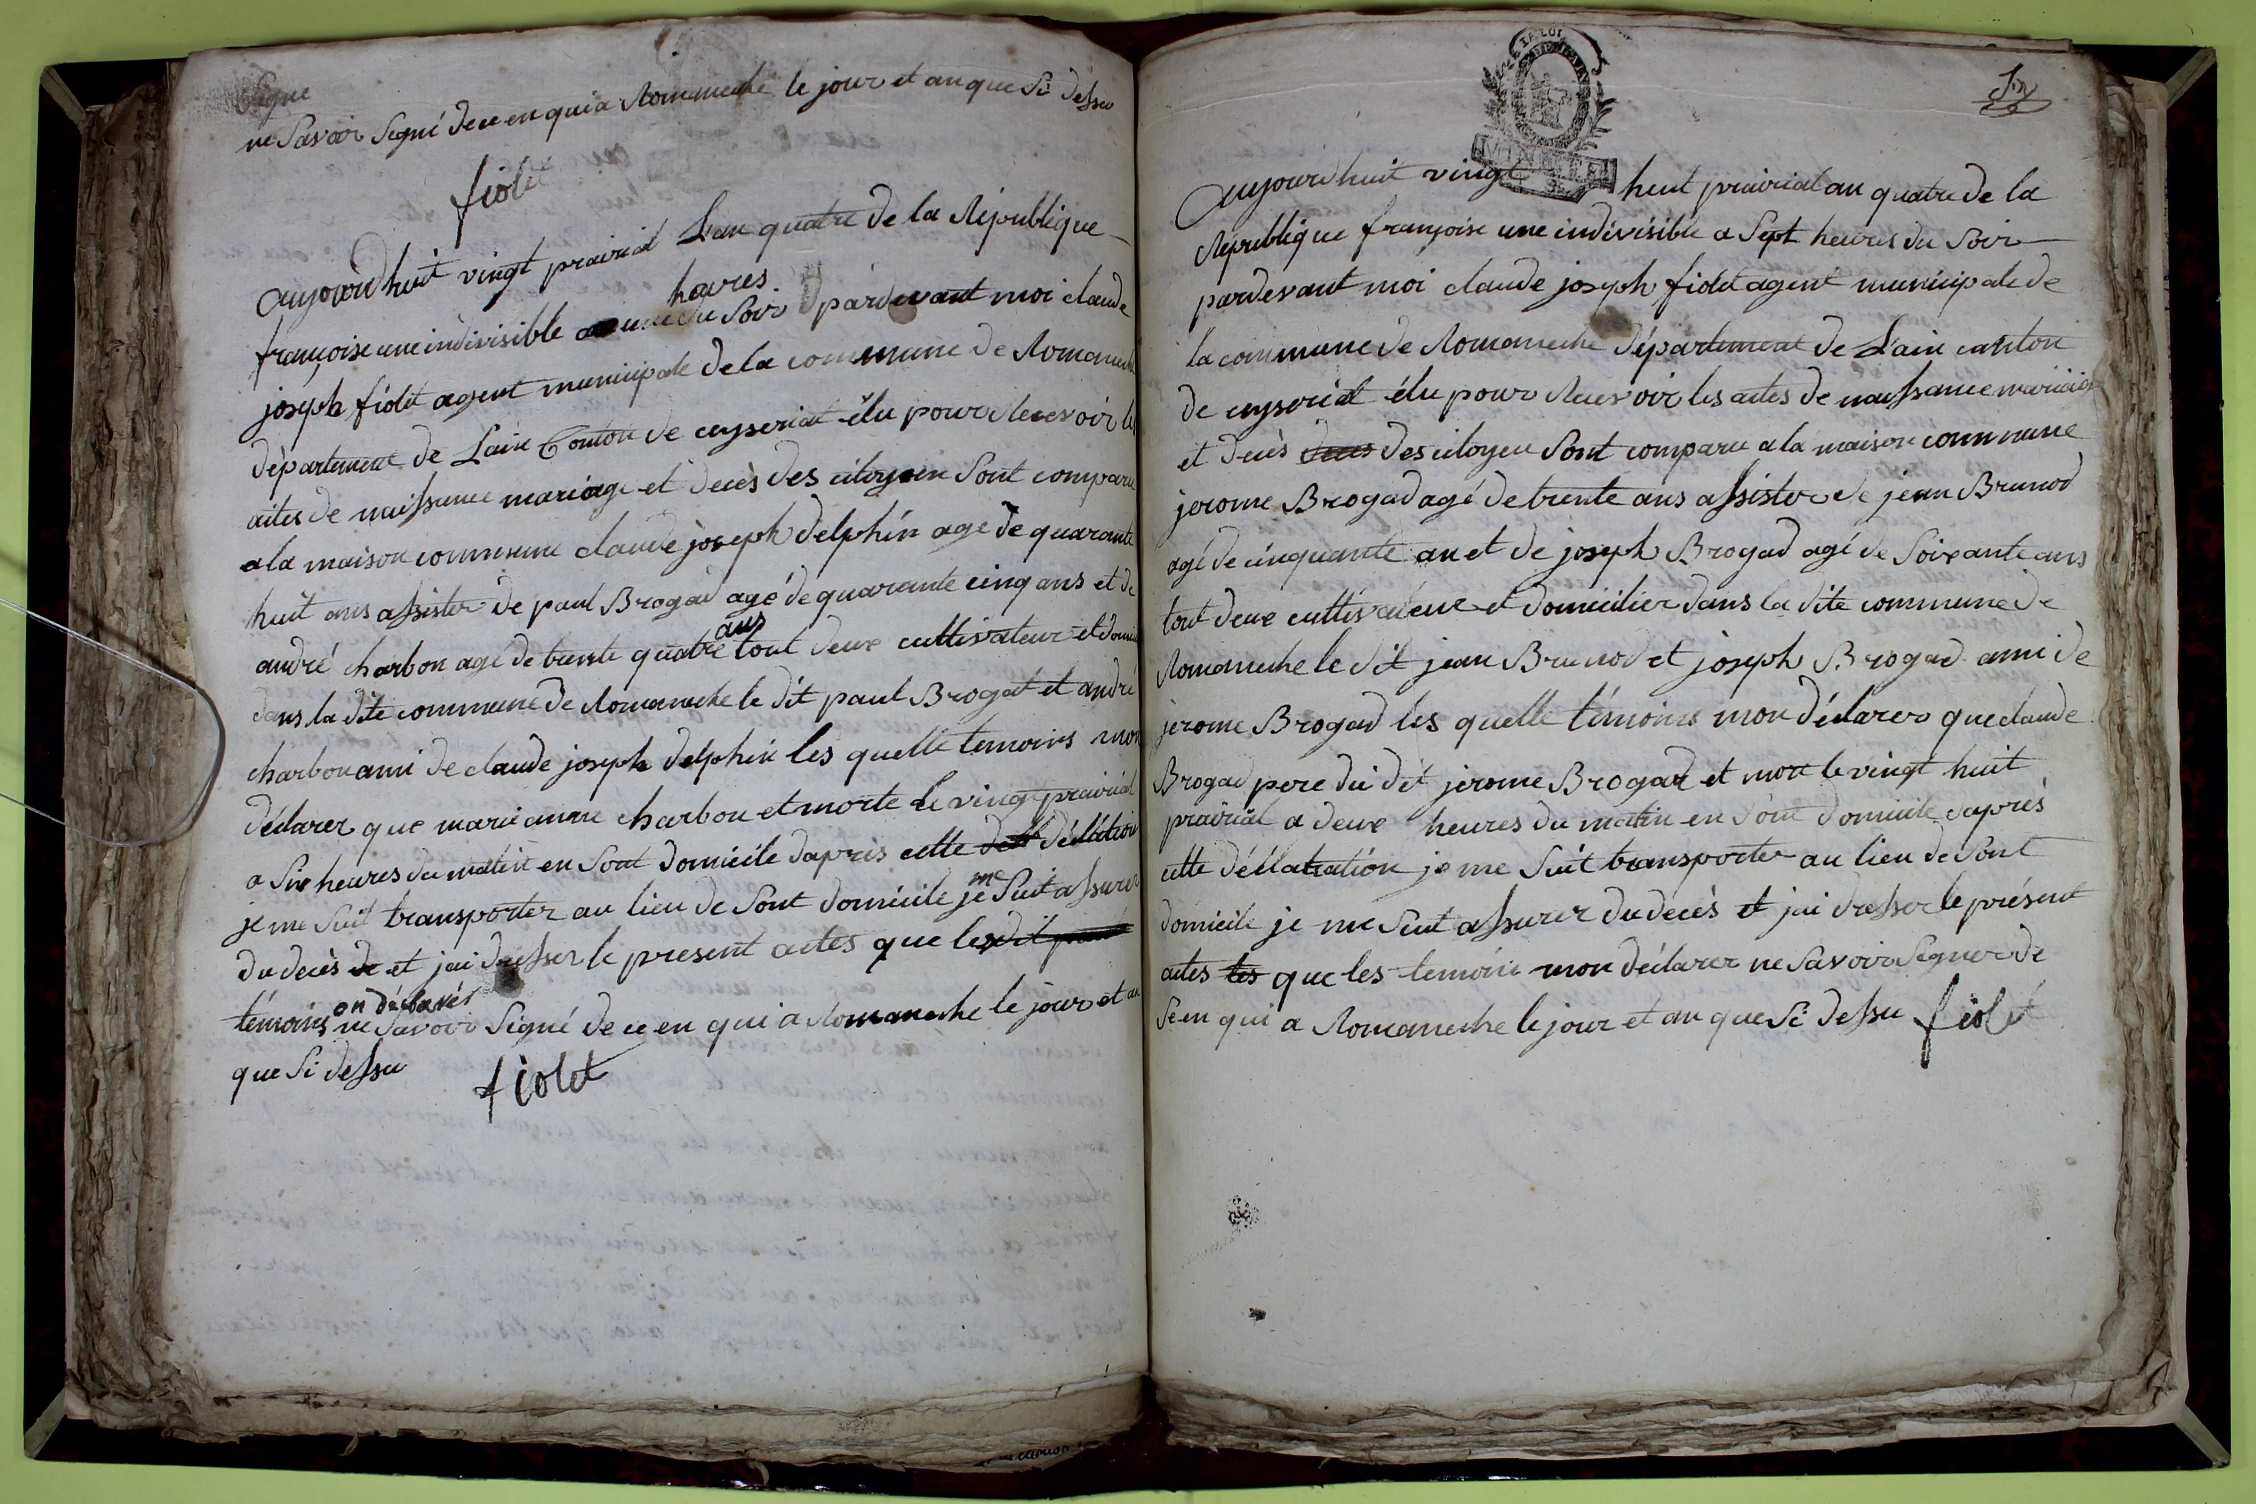 Signe
ne Savoir Signé de ce en qui a Romaneche le jour et an que Si dessu
fiolet
aujourd huit vingt prairial L'an quatre de la République
françoise une indivisible a une heures du Soir pardevant moi claude
joseph fiolet agent municipale de la commune de Romaneche
département de Lain Canton de ceyseriat élu pour Recevoir les
actes de naissance mariage et decès des citoyein Sont comparu
a la maison commune claude joseph delphin agé de quarante
huit ans assister de paul Brogad agé de quarante cinq ans et de
andré charbon agé de trente quatre ans tout deux cultivateur et domici
dans la dite commune de Romaneche le dit paul Brogat et andré
charbon ami de claude joseph delphin les quelle temoins mon
déclarer que marie anne charbon et morte le vingt prairial
a Six heures du matin en Sont domicile dapris cette déllération
je me Suit transporter au lieu de Sont domicile je me Suit assurer
du decès de et jai dresser le present actes que les dit
témoins on déclarés ne Savoir Signé de ce en qui a Romaneche le jour et an
que Si dessu
fiolet
LA LOI
aujourd huit vingt huit prairial an quatre de la
République françoise une indivisible a Sept heures du Soir
pardevant moi claude joseph fiolet agent municipale de
la commune de Romaneche département de L'ain canton
de ceyseriat élu pour Recevoir les actes de naissance mariages
et decès deces des citoyen Sont comparu a la maison commune
jerome Brogad agé de trente ans assister de jean Brunod
agé de cinquante an et de joseph Brogad agé de Soixante ans
tout deux cultivateur et domicilier dans la dite commune de
Romaneche le dit jean Brunod et joseph Brogad ami de
jerome Brogad les quelle témoins mon déclarer que claude
Brogad pere du dit jerome Brogad et mort le vingt huit
prairial a deux heures du matin en Sont domicile dapris
cette déclatration je me Suit transporter au lieu de Sont
domicile je me Suit assurer du decès et jai dresser le présent
actes les que les temoins mon déclarer ne Savoir Signer de
Se en qui a Romaneche le jour et an que Si dessu fiolet